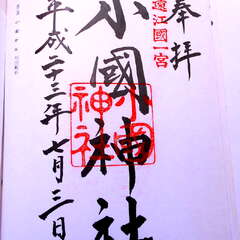 奉拝
遠江國一宮
小國神社
小國神社
平成二十三年七月三日